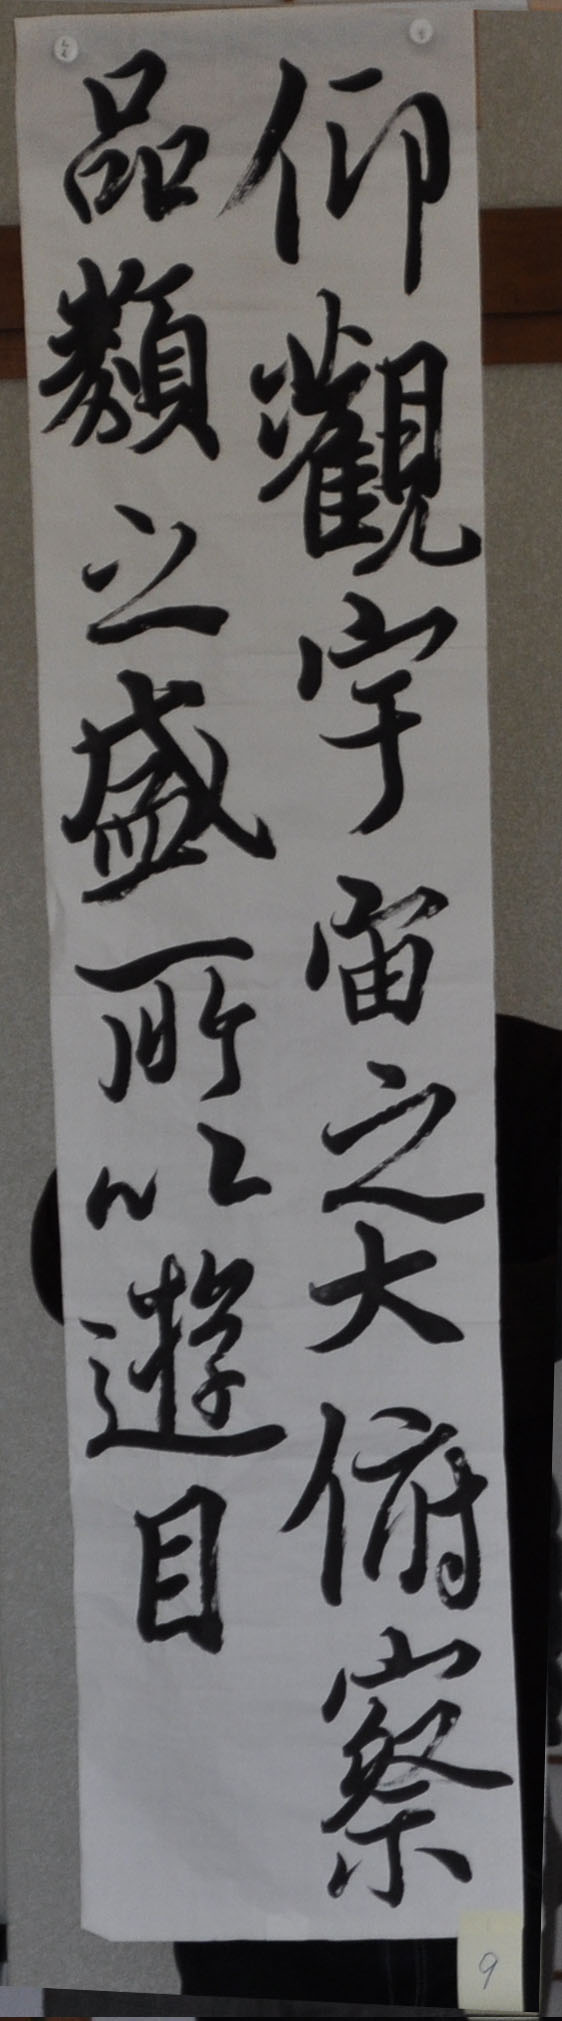 仰觀宇宙之大俯察
品類之盛所以遊目
9